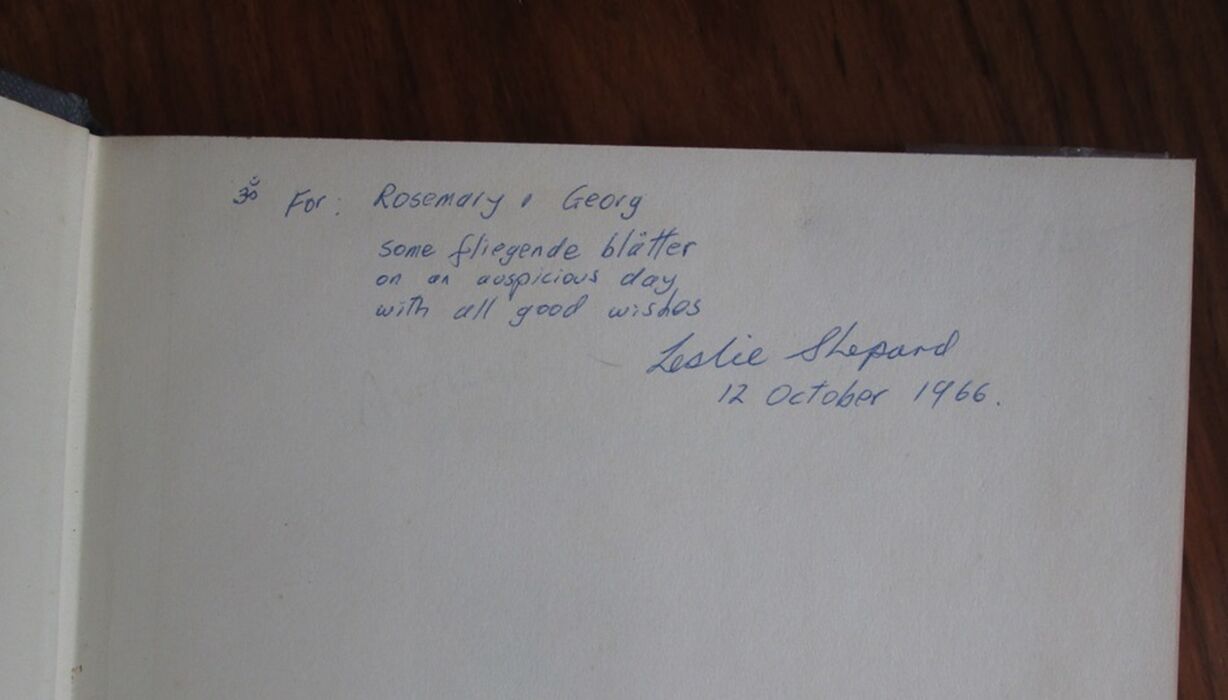 ॐ For: Rosemary & Georg
some fliegende blätter
on an auspicious day
with all good wishes
Leslie Shepard
12 October 1966.